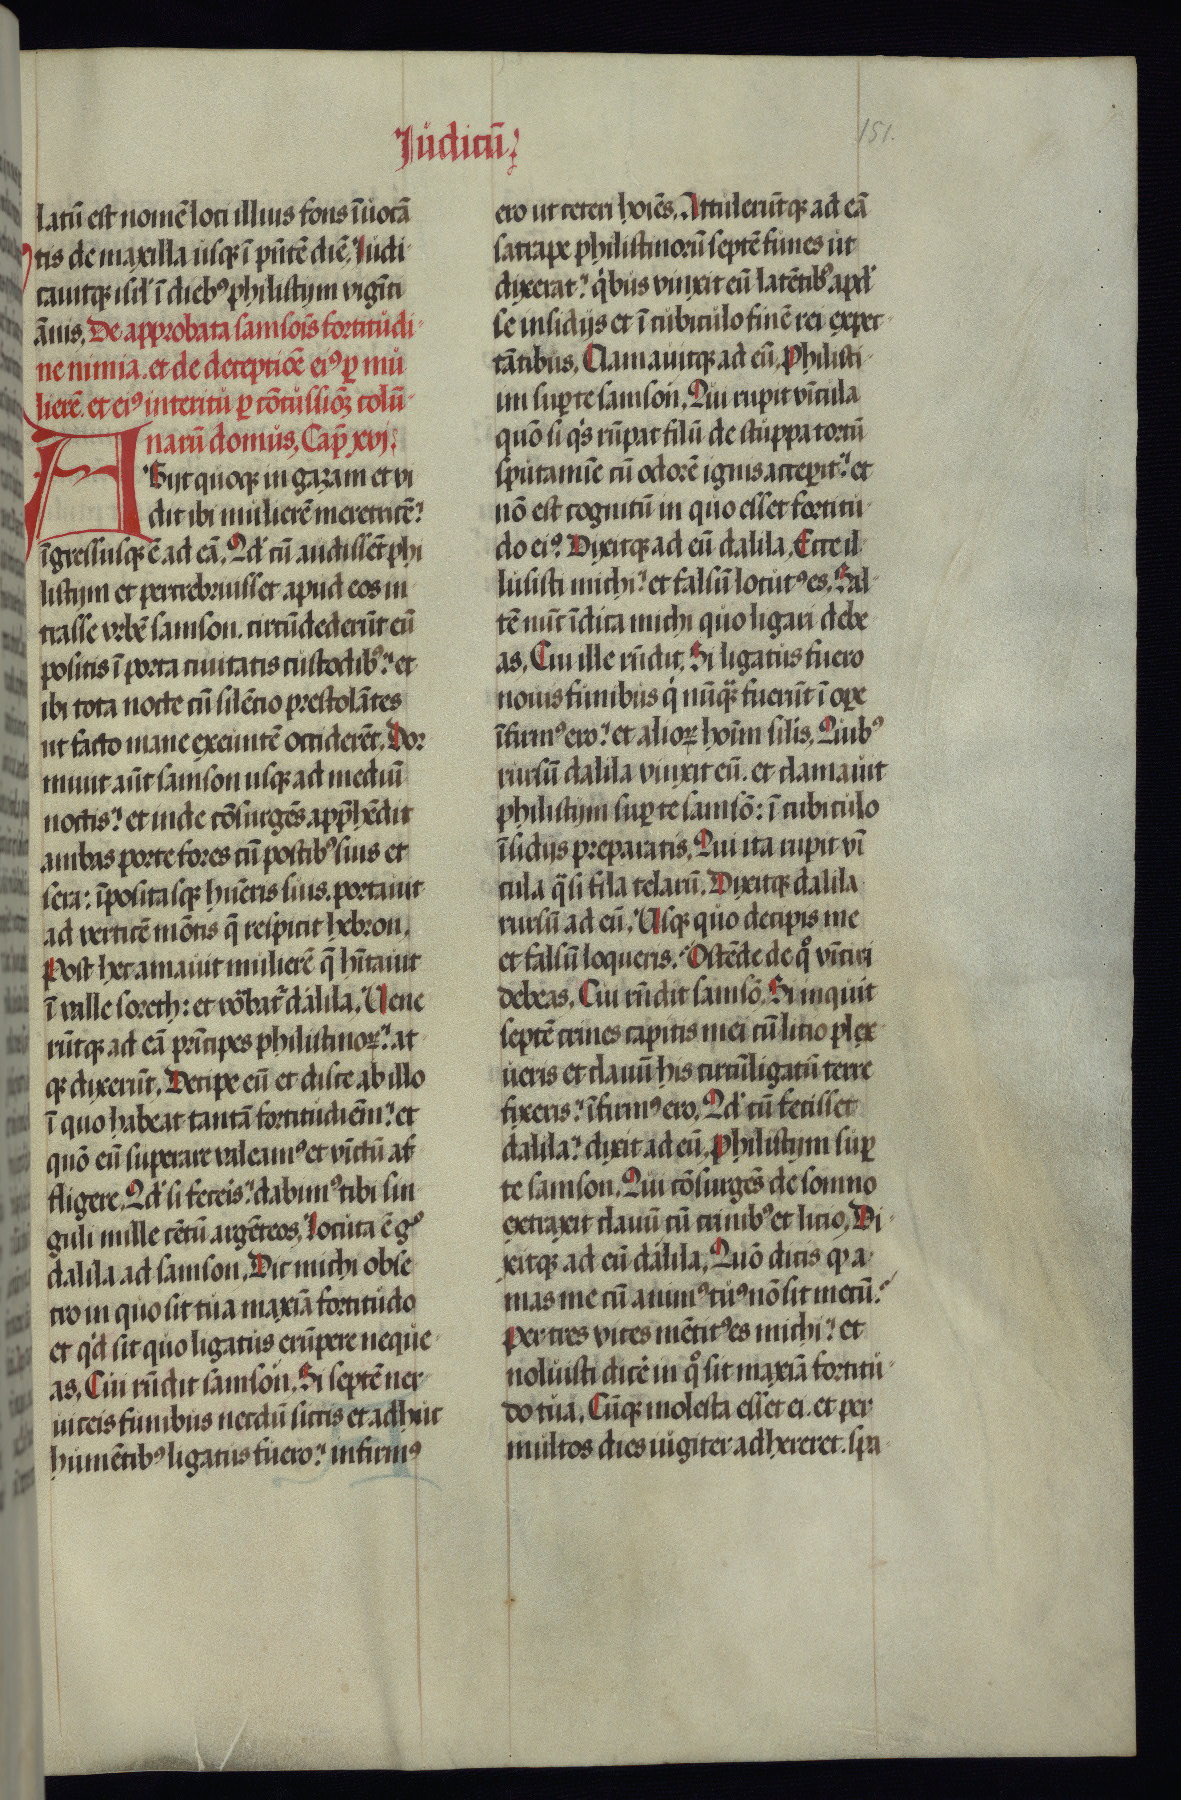 Iudicū
151.
latū est nomē loci illius fons īuocā
tis de maxilla usq; ī pn̄tē diē. Iudi
cauitq; isrl' ī dieb9 philistijm viginti
ānis. De approbata samsoīs fortitudi
ne nimia. et de deceptiōe ei9 ꝑ mu
lierē. et ei9 interitu ꝑ cōcussiōꝫ colū
narū domus. Cap̄ xvj.
Abijt quoq; in gazam et vi
dit ibi mulierē meretricē?
īgressusq; ē ad eā. Qd' cū audissēt phi
listijm et percrebruisset apud eos in
trasse vrbē samson. circūdederūt eū
positis ī porta ciuitatis custodib9? et
ibi tota nocte cū silēcio prestolātes
ut facto mane exeuntē occiderēt. Dor
miuit aūt samson usq; ad mediū
noctis? et inde cōsurgēs app̄hēdit
ambas porte fores cū postib9 suis et
sera: īpositasq; hūeris suis. portauit
ad verticē mōtis q̄ respicit hebron.
Post hec amauit mulierē q̄ hītauit
ī valle soreth: et vōbat' dalila. Vene
rūtq; ad eā prīcipes philistinoꝝ? at
q; dixerūt. Decipe eū et disce ab illo
ī quo habeat tantā fortitudiēm? et
quō eū superare valeam9 et vīctū af
fligere. Qd' si feceis? dabim9 tibi sin
guli mille cētū argēteos. Locuta ē g°
dalila ad samson. Dic michi obse
cro in quo sit tua maxīa fortitudo
et q'd sit quo ligatus erūpere neque
as. Cui rn̄dit samson. Si septē ner
uiceis funibus necdū siccis et adhuc
humētib9 ligatus fuero? infirm9
ero ut ceteri hoīes. Attulerūtq; ad eā
satrape philistinorū septē funes ut
dixerat? q'bus vinxit eū latētib9 apd'
se insidijs et ī cubiculo finē rei expec
tātibus. Clamauitq; ad eū. Philisti
im suꝑ te samson. Qui rupit vīcula
quō si q's rūpat filū de stuppa tortū
sputamīe cū odorē ignis acceꝑit? et
nō est cognitū in quo esset fortitu
do ei9. Dixitq; ad eū dalila. Ecce il
lusisti michi? et falsū locut9 es. Sal
tē nūc īdica michi quo ligari debe
as. Cui ille rn̄dit. Si ligatus fuero
nouis funibus q' nūq̄ꝫ fuerūt ī oꝑe
īfirm9 ero? et alioꝝ hoīm silis. Quib9
rursū dalila vinxit eū. et clamauit
philistijm suꝑ te samsō: ī cubiculo
īsidijs preparatis. Qui ita rupit vī
cula q̄si fila telarū. Dixitq; dalila
rursū ad eū. Usq; quo decipis me
et falsū loqueris? Ostēde de q° vīciri
debeas. Cui rn̄dit samsō. Si inquit
septē crines capitis mei cū licio plex
ueris et clauū his circūligatū terre
fixeris? īfirm9 ero. Qd' cū fecisset
dalila? dixit ad eū. Philistijm suꝑ
te samson. Qui cōsurgēs de somno
extraxit clauū cū crinib9 et licio. Di
xitq; ad eū dalila. Quō dicis q' a
mas me cū anim9 tu9 nō sit mecū?
Per tres vices mētit9 es michi? et
noluisti dicē in q° sit maxīa fortitu
do tua. Cūq; molesta esset ei. et per
multos dies iugiter adhereret. spa